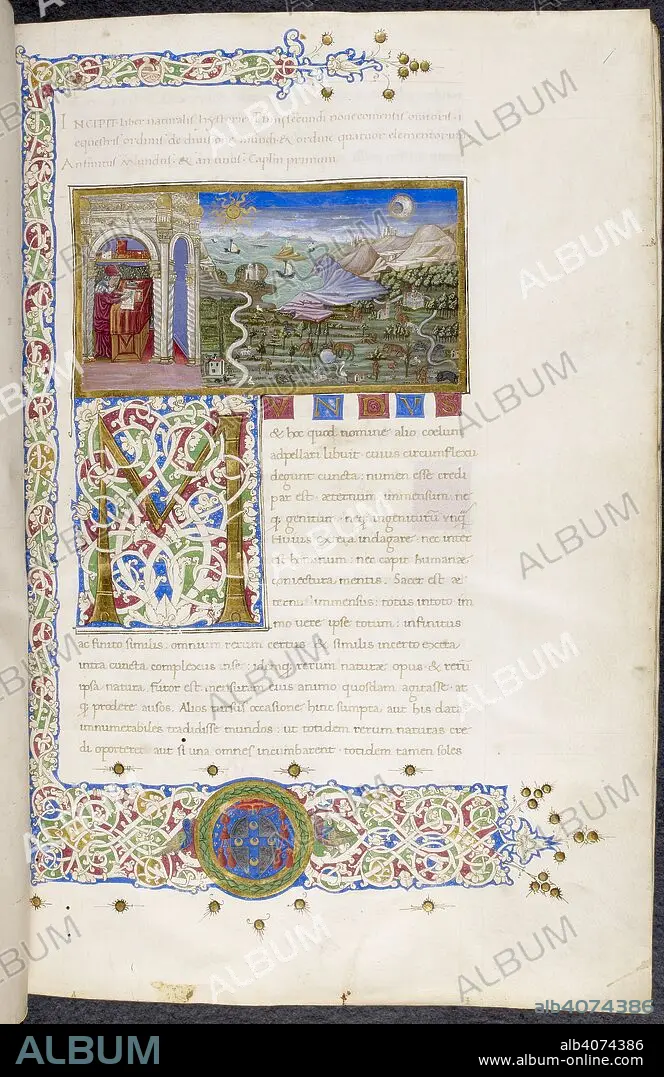 INCIPIT liber naturalis hystorie Plinii secundi novocomensis oratoris
equestris ordinis de divisione mundi & ordine quatuor elementorum
An finitus mundus & an unus Caplm primum
MVNDVS
& hoc quod nomine alio coelum
adpellari libuit cuius circumflexu
degunt cuncta: numen esse credi
par est aeternum immensum ne
q; genitum neq; ingenitum unq
Huius extera indagare nec inter
est hominum nec capit humanae
coniectura mentis. Sacer est ae
ternus immensus: totus in toto im
mo vere ipse totum: infinitus
ac finito similis omnium rerum certus & similis incerto extera
intra cuncta complexus in se: idemq; rerum naturae opus & rerum
ipsa natura. furor est mensuram eius animo quosdam agitasse at
q; prodere ausos. Alios rursus occasione hinc sumpta aut his data
innumerabiles tradidisse mundos: ut totidem rerum naturas cre
di oporteret aut si una omnes incumbarent totidem tamen soles
alb4074386
ALBUM
alb4074386
www.album-online.com